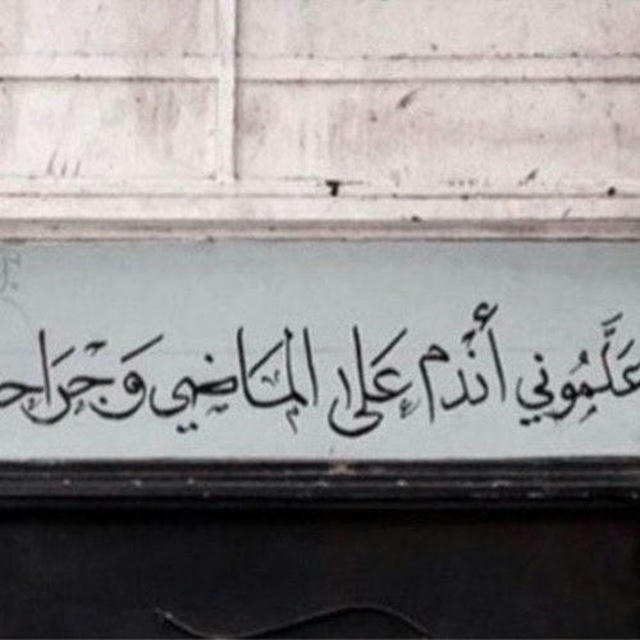 عَلَّمُوني أندم على المَاضي وَجِرَاح